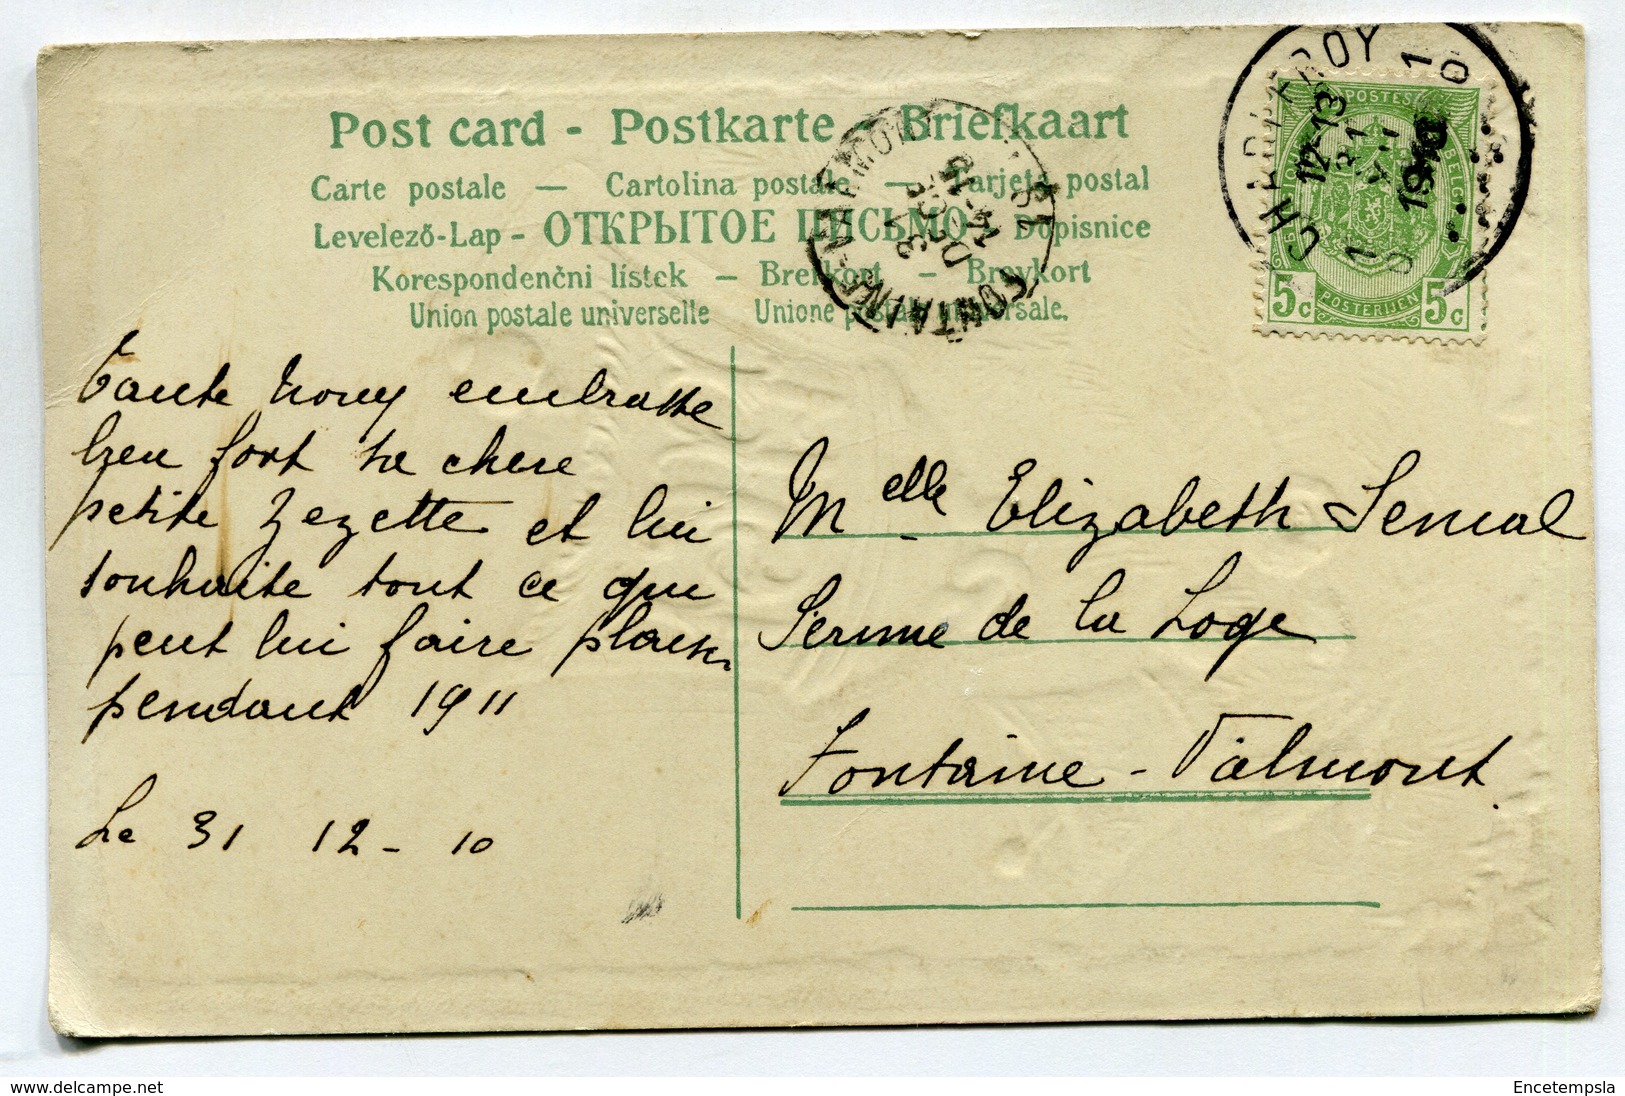 Post card - Postkarte - Briefkaart
Carte postale — Cartolina postale — Tarjeta postal
Levelező-Lap - ОТКРЫТОЕ ПИСЬМО - Dopisnice
Korespondenčni listek — Brefkort — Brevkort
Union postale universelle Unione postale universale.
CHARLEROY 1
12-13
31
1910
POSTES
BELGIQUE
5c POSTERIJEN 5c
Tante Nony embrasse
bien fort sa chere
petite Zezette et lui
souhaite tout ce qui
peut lui faire plaisir
pendant 1911
Le 31 12 - 10
Melle Elizabeth Semal
Ferme de la Loge
Fontaine - Valmont.
delcampe.net
Encetempsla